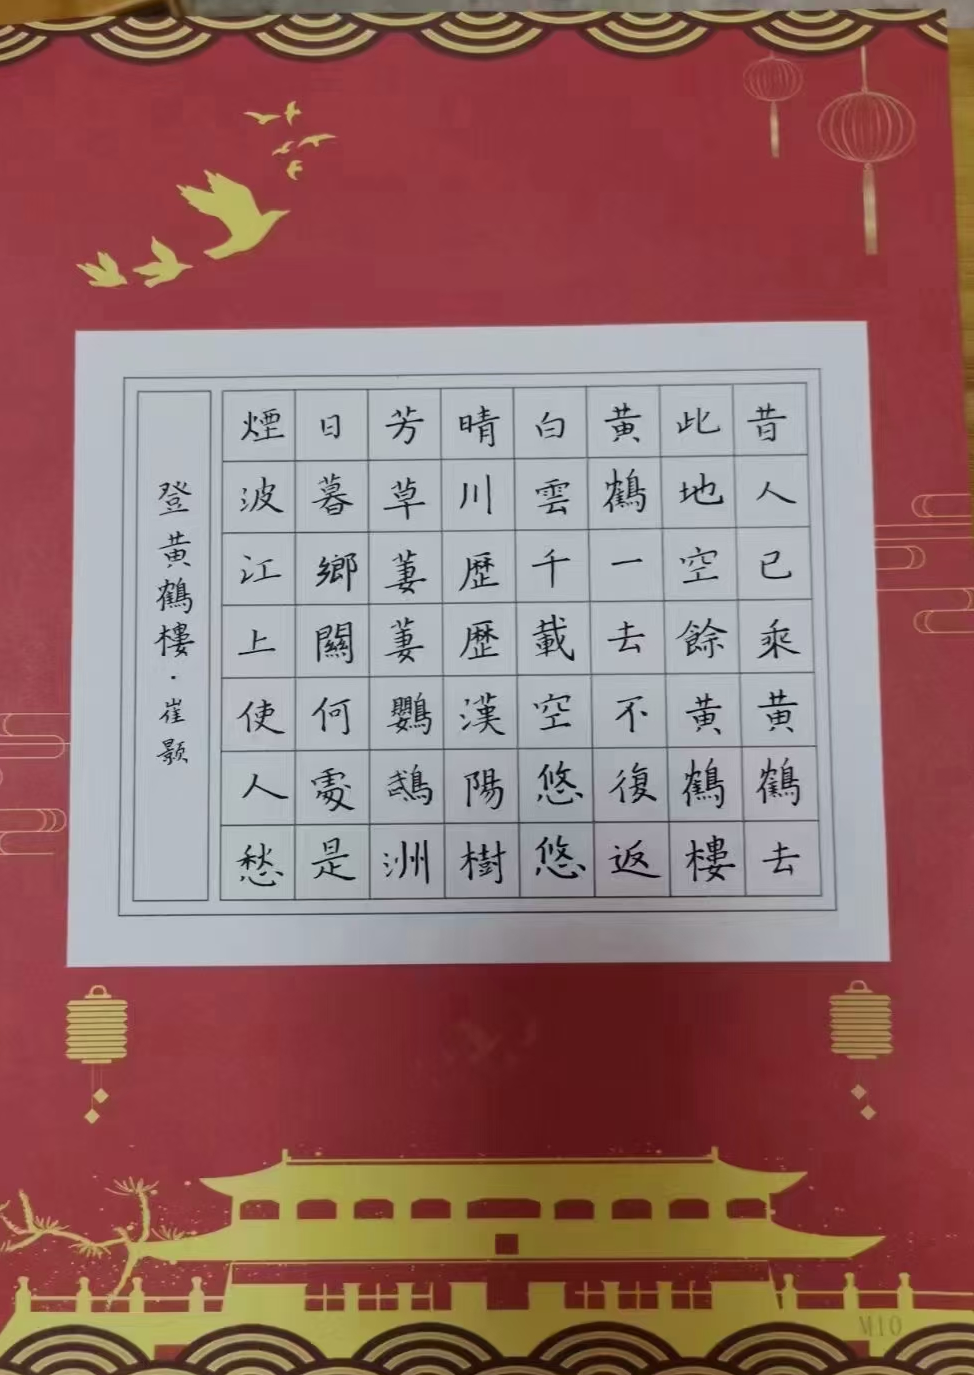 昔人已乘黃鶴去
此地空餘黃鶴樓
黃鶴一去不復返
白雲千載空悠悠
晴川歷歷漢陽樹
芳草萋萋鸚鵡洲
日暮鄉關何處是
煙波江上使人愁
登黃鶴樓·崔顥
M10